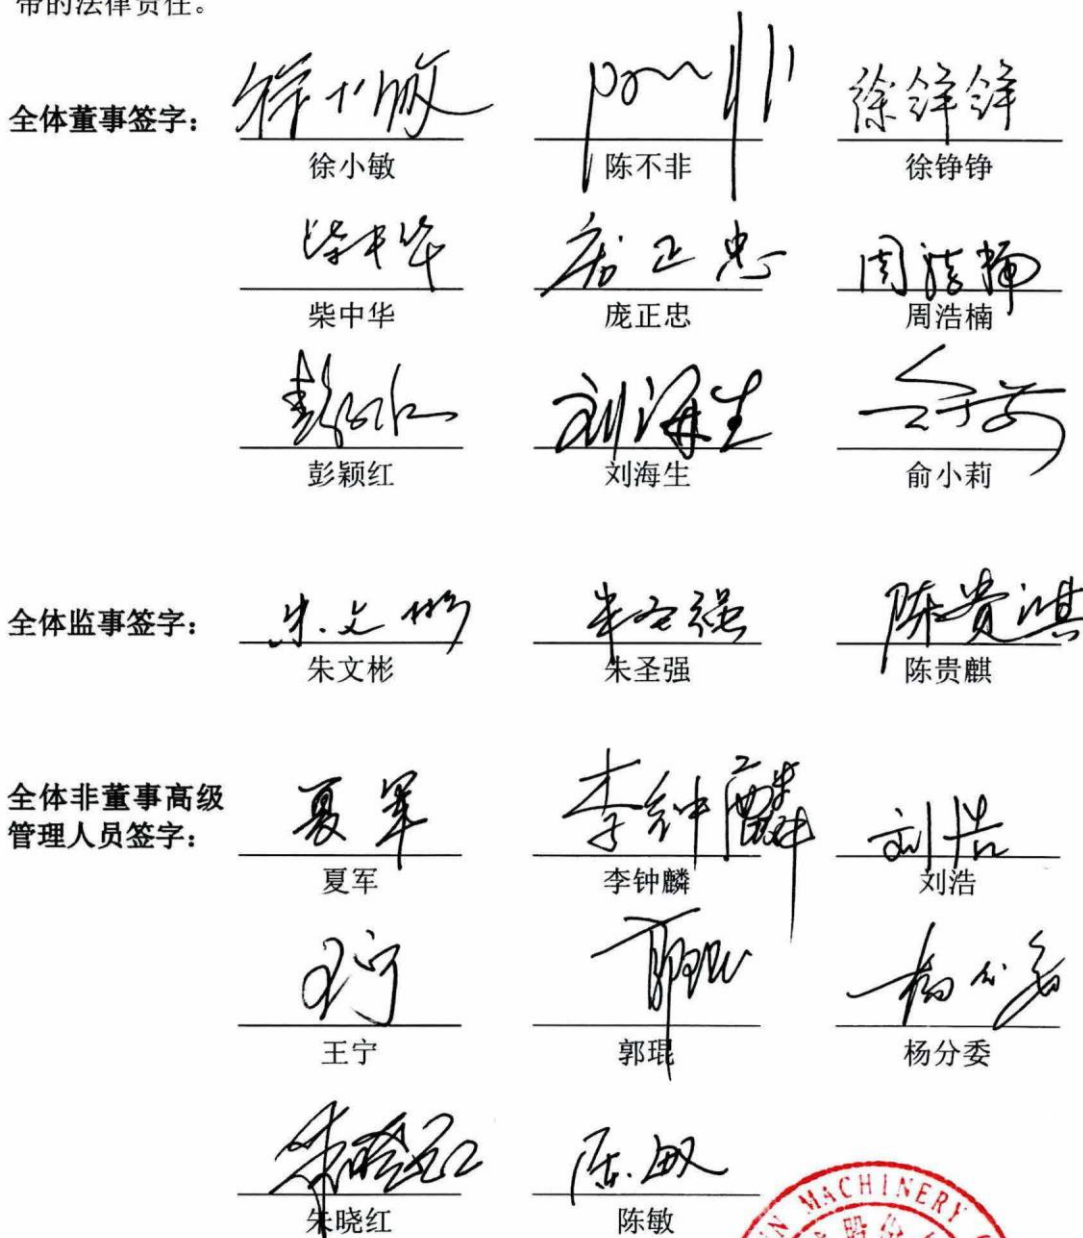 带的法律责任。
全体董事签字：
徐小敏 陈不非 徐铮铮
柴中华 庞正忠 周浩楠
彭颖红 刘海生 俞小莉
全体监事签字：
朱文彬 朱圣强 陈贵麒
全体非董事高级
管理人员签字：
夏军 李钟麟 刘浩
王宁 郭琨 杨分委
朱晓红 陈敏
MACHINERY
股份